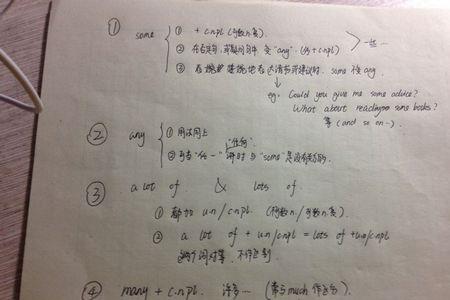 ① some { ① + c.npl (可数n.复).
② 在否定句，或疑问句中 变 "any". (修+c.npl) > 一些…
③ 在 委婉地表达请求或建议时, some 不变 any.
eg. Could you give me some advice?
What about reading some books?
等 (and so on~)
② any { ① 用法同上
"任何"
② 可当 "任一" 讲时 与 "some" 是没有关系的.
③ a lot of & lots of
① 都加 u.n/c.npl (不可数n./可数n.复)
② a lot of + u.n/c.npl = lots of + u.n/c.npl
两个词对等, 不作区别.
④ many + c.npl. 许多… (常与much作区分)